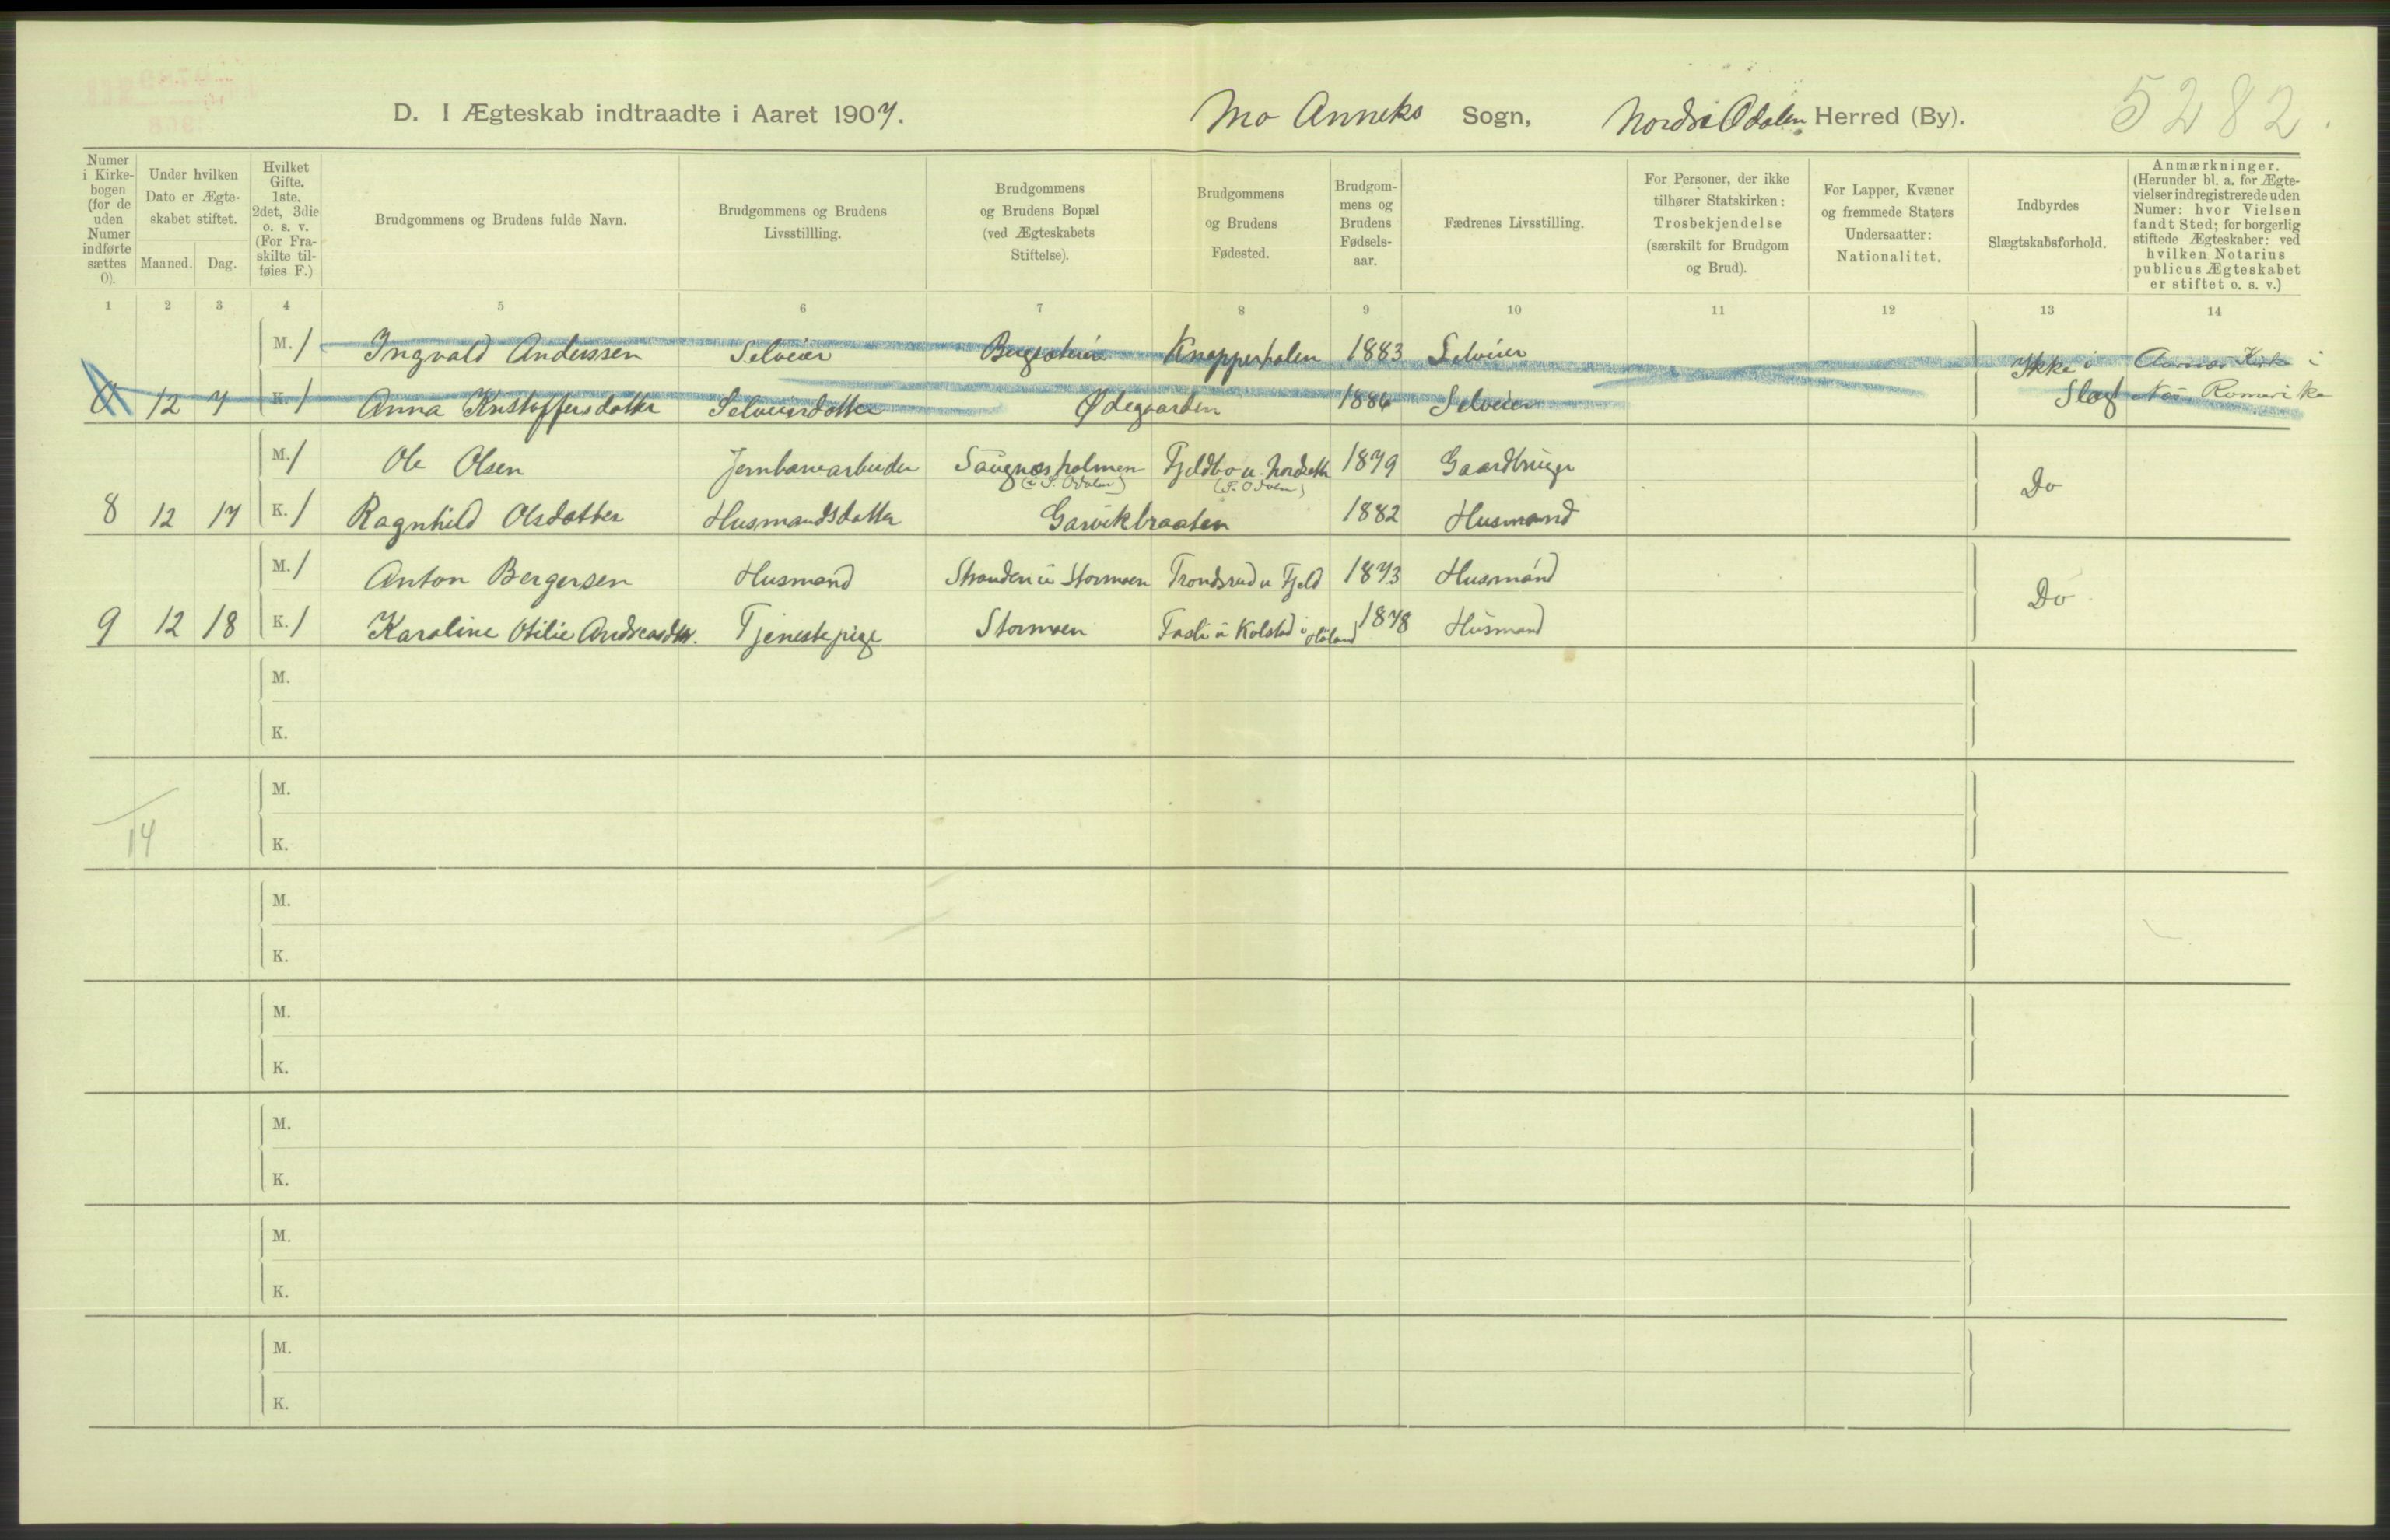 D. I Ægteskab indtraadte i Aaret 1907.
Mo Anneks Sogn, Nordre Odalen Herred (By).
5282.
Numer i Kirkebogen (for de uden Numer indførte sættes 0).
Under hvilken Dato er Ægteskabet stiftet.
Maaned. Dag.
Hvilket Gifte. 1ste. 2det, 3die o. s. v. (For Fraskilte tilføies F.)
Brudgommens og Brudens fulde Navn.
Brudgommens og Brudens Livsstillling.
Brudgommens og Brudens Bopæl (ved Ægteskabets Stiftelse).
Brudgommens og Brudens Fødested.
Brudgommens og Brudens Fødselsaar.
Fædrenes Livsstilling.
For Personer, der ikke tilhører Statskirken: Trosbekjendelse (særskilt for Brudgom og Brud).
For Lapper, Kvæner og fremmede Staters Undersaatter: Nationalitet.
Indbyrdes Slægtskabsforhold.
Anmærkninger. (Herunder bl. a. for Ægtevielser indregistrerede uden Numer: hvor Vielsen fandt Sted; for borgerlig stiftede Ægteskaber: ved hvilken Notarius publicus Ægteskabet er stiftet o. s. v.)
1 2 3 4 5 6 7 8 9 10 11 12 13 14
M. 1 Ingvald Anderssen Selveier Knapperholen 1883 Selveier Ikke i Kirke i
12 7 K. 1 Anna Kristoffersdatter Selveierdatter Ødegaarden 1886 Selveier Slægt Næs Romerike
M. 1 Ole Olsen Jernbanearbeider Saugnesholmen Fjeldbo u. Nordseth 1879 Gaardbruger Do
(i S. Odalen) (S. Odalen)
8 12 17 K. 1 Ragnhild Olsdatter Husmandsdatter Garvikbraaten 1882 Husmand
M. 1 Anton Bergersen Husmand Stranden u Stormoen Trondsrud u Fjeld 1873 Husmand Do
9 12 18 K. 1 Karoline Otilie Andreasdtr. Tjenestepige Stormoen u Kolstad i Høland 1878 Husmand
M.
K.
M.
14
K.
M.
K.
M.
K.
M.
K.
M.
K.
M.
K.